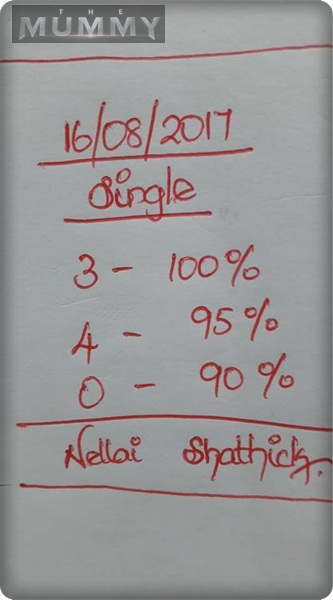 THE
MUMMY
16/08/2017
Single
3 - 100%
4 - 95%
0 - 90%
Nellai Shathick.